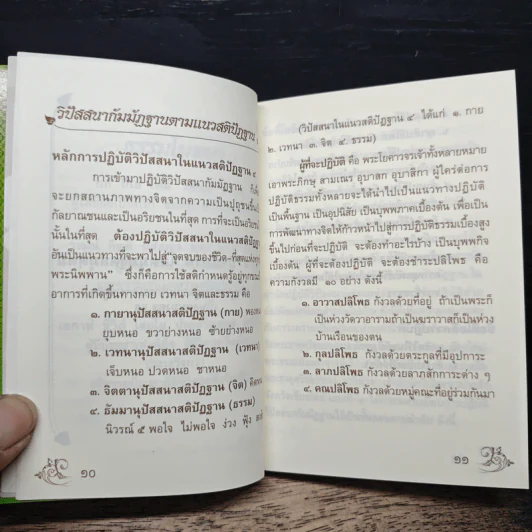 วิปัสสนากัมมัฏฐานตามแนวสติปัฏฐาน
หลักการปฏิบัติวิปัสสนาในแนวสติปัฏฐาน ๔
การเข้ามาปฏิบัติวิปัสสนากัมมัฏฐาน
จะยกสถานภาพทางจิตจากความเป็นปุถุชนขึ้น
กัลยาณชนและเป็นอริยชนในที่สุด การที่จะเป็นอริยชน
นั้นในที่สุด ต้องปฏิบัติวิปัสสนาในแนวสติปัฏฐาน
อันเป็นแนวทางที่จะพาไปสู่ "จุดจบของชีวิต-ที่สุดแห่ง
พระนิพพาน" ซึ่งก็คือการใช้สติกำหนดรู้อยู่ทุกขณะ
อาการที่เกิดขึ้นทางกาย เวทนา จิตและธรรม คือ
๑. กายานุปัสสนาสติปัฏฐาน (กาย)
ยุบหนอ ขวาย่างหนอ ซ้ายย่างหนอ
๒. เวทนานุปัสสนาสติปัฏฐาน (เวทนา)
เจ็บหนอ ปวดหนอ ชาหนอ
๓. จิตตานุปัสสนาสติปัฏฐาน (จิต)
๔. ธัมมานุปัสสนาสติปัฏฐาน (ธรรม)
นิวรณ์ ๕ พอใจ ไม่พอใจ ง่วง ฟุ้ง
๑๐
(วิปัสสนาในแนวสติปัฏฐาน ๔ ได้แก่ ๑. กาย
๒. เวทนา ๓. จิต ๔. ธรรม)
ผู้ที่จะปฏิบัติ คือ พระโยคาวจรเจ้าทั้งหลายหมาย
เอาพระภิกษุ สามเณร อุบาสก อุบาสิกา ผู้ใคร่ต่อการ
ปฏิบัติธรรมทั้งหลายจะได้นำไปเป็นแนวทางปฏิบัติ
เป็นพื้นฐาน เป็นอุปนิสัย เป็นบุพพภาคเบื้องต้น เพื่อเป็น
การพัฒนาทางจิตให้ก้าวหน้าไปสู่การปฏิบัติธรรมเบื้องสูง
ขึ้นไปก่อนที่จะปฏิบัติ จะต้องทำอะไรบ้าง เป็นบุพพกิจ
เบื้องต้น ผู้ที่จะต้องปฏิบัติ จะต้องชำระปลิโพธ คือ
ความกังวลมี ๑๐ อย่าง ดังนี้
๑. อาวาสปลิโพธ กังวลด้วยที่อยู่ ถ้าเป็นพระก็
เป็นห่วงวัดวาอารามถ้าเป็นฆราวาสก็เป็นห่วง
บ้านเรือนของตน
๒. กุลปลิโพธ กังวลด้วยตระกูลที่มีอุปการะ
๓. ลาภปลิโพธ กังวลด้วยลาภสักการะต่าง ๆ
๔. คณปลิโพธ กังวลด้วยหมู่คณะที่อยู่ร่วมกันมา
๑๑